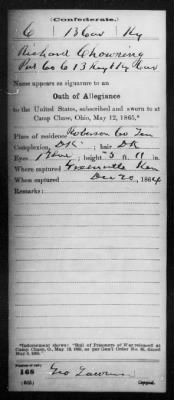 Confederate.
C 13 Cav Ky
Richard Chowning
Pvt Co C 13 Regt Ky Cav
Name appears as signature to an
Oath of Allegiance
to the United States, subscribed and sworn to at
Camp Chase, Ohio, May 12, 1865.*
Place of residence Roberson Co Ten
Complexion, DK; hair DK
Eyes Blue; height 5 ft. 11 in.
Where captured Greenville Ken
When captured Dec 20, 1864
Remarks:
*Indorsement shows: "Roll of Prisoners of War released at
Camp Chase, O., May 12, 1865, as per Gen'l Order No. 85, dated
May 8, 1865."
Number of roll:
168
Geo
(635) Copyist.